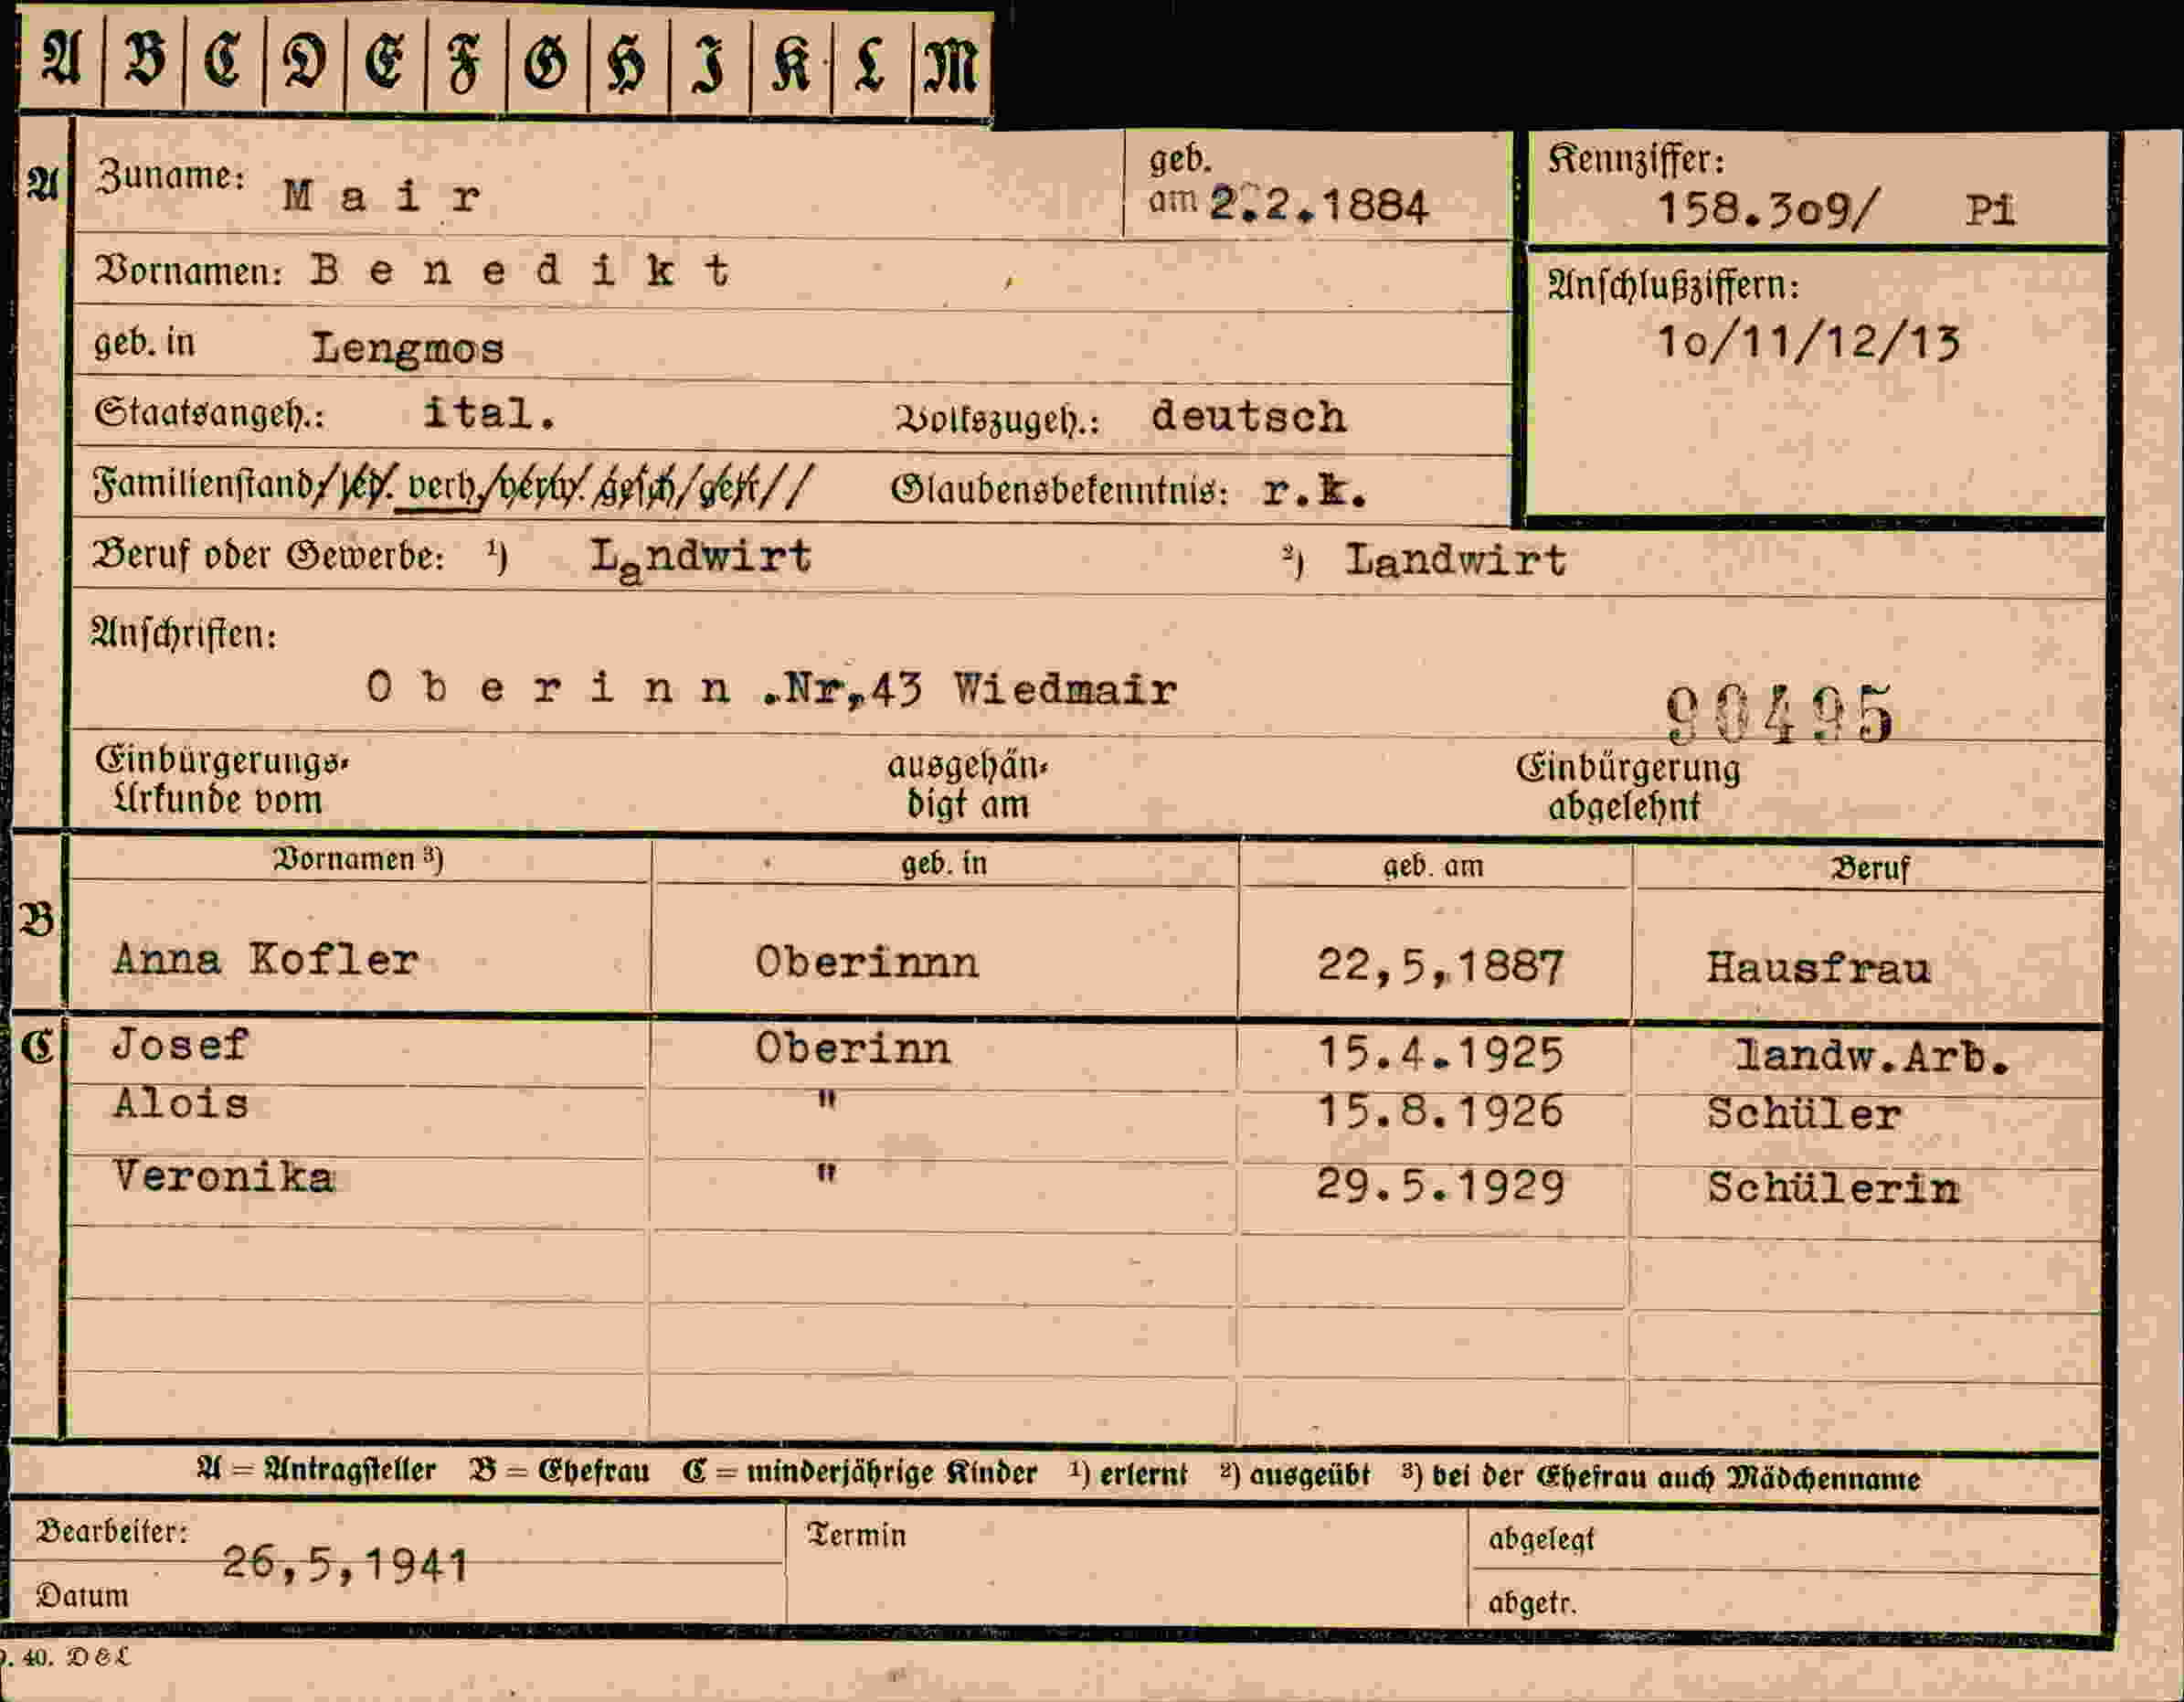 A B C D E F G H I K L M
A Zuname: Mair geb. am 2.2.1884 Kennziffer: 158.3o9/ Pi
Vornamen: Benedikt
Anschlußziffern: 1o/11/12/13
geb. in Lengmos
Staatsangeh.: ital. Volkszugeh.: deutsch
Familienstand/led. verh./verw. gesch/getr// Glaubensbekenntnis: r.k.
Beruf oder Gewerbe: ¹) Landwirt ²) Landwirt
Anschriften:
Oberinn.Nr,43 Wiedmair
90495
Einbürgerungs- ausgehän- Einbürgerung
Urkunde vom digt am abgelehnt
Vornamen ³) geb. in geb. am Beruf
B
Anna Kofler Oberinnn 22,5,1887 Hausfrau
C Josef Oberinn 15.4.1925 landw.Arb.
Alois " 15.8.1926 Schüler
Veronika " 29.5.1929 Schülerin
A = Antragsteller B = Ehefrau C = minderjährige Kinder ¹) erlernt ²) ausgeübt ³) bei der Ehefrau auch Mädchenname
Bearbeiter: Termin abgelegt
26,5,1941
Datum abgetr.
. 40. D&L